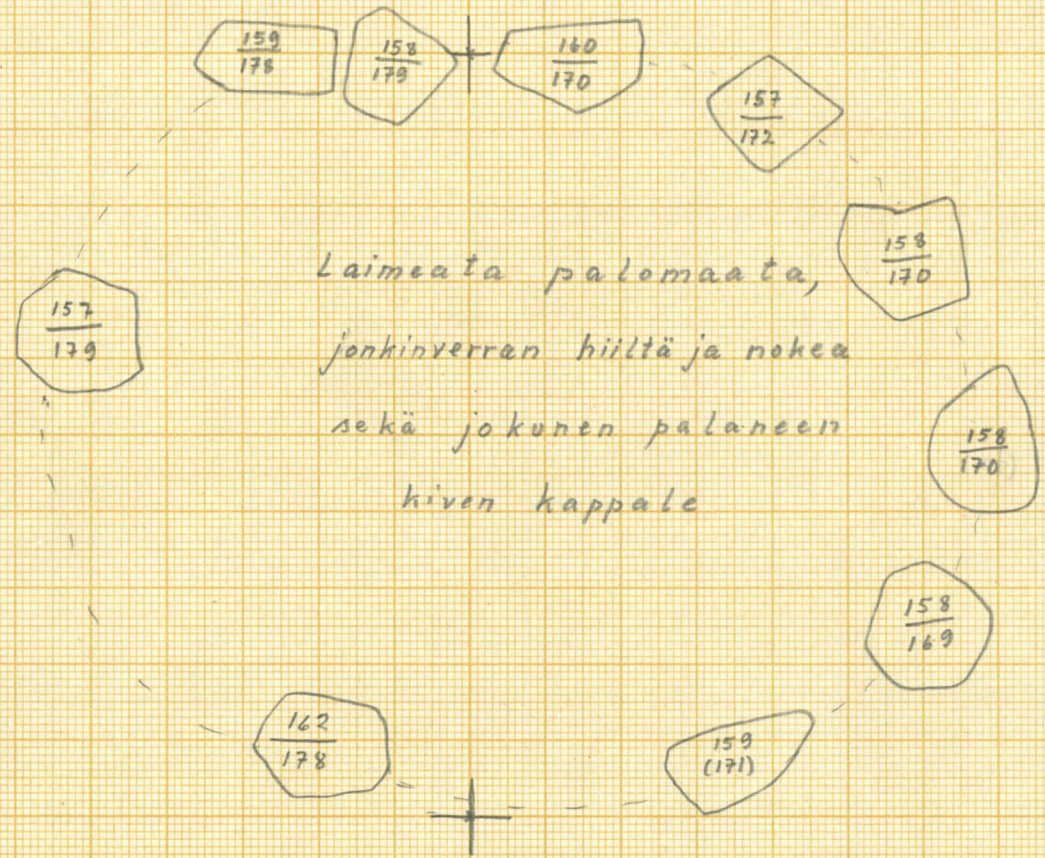 159
178
158
179
160
170
157
172
158
170
157
179
Laimeata palomaata,
jonkinverran hiiltä ja nokea
sekä jokunen palaneen
kiven kappale
158
170
158
169
162
178
159
(171)